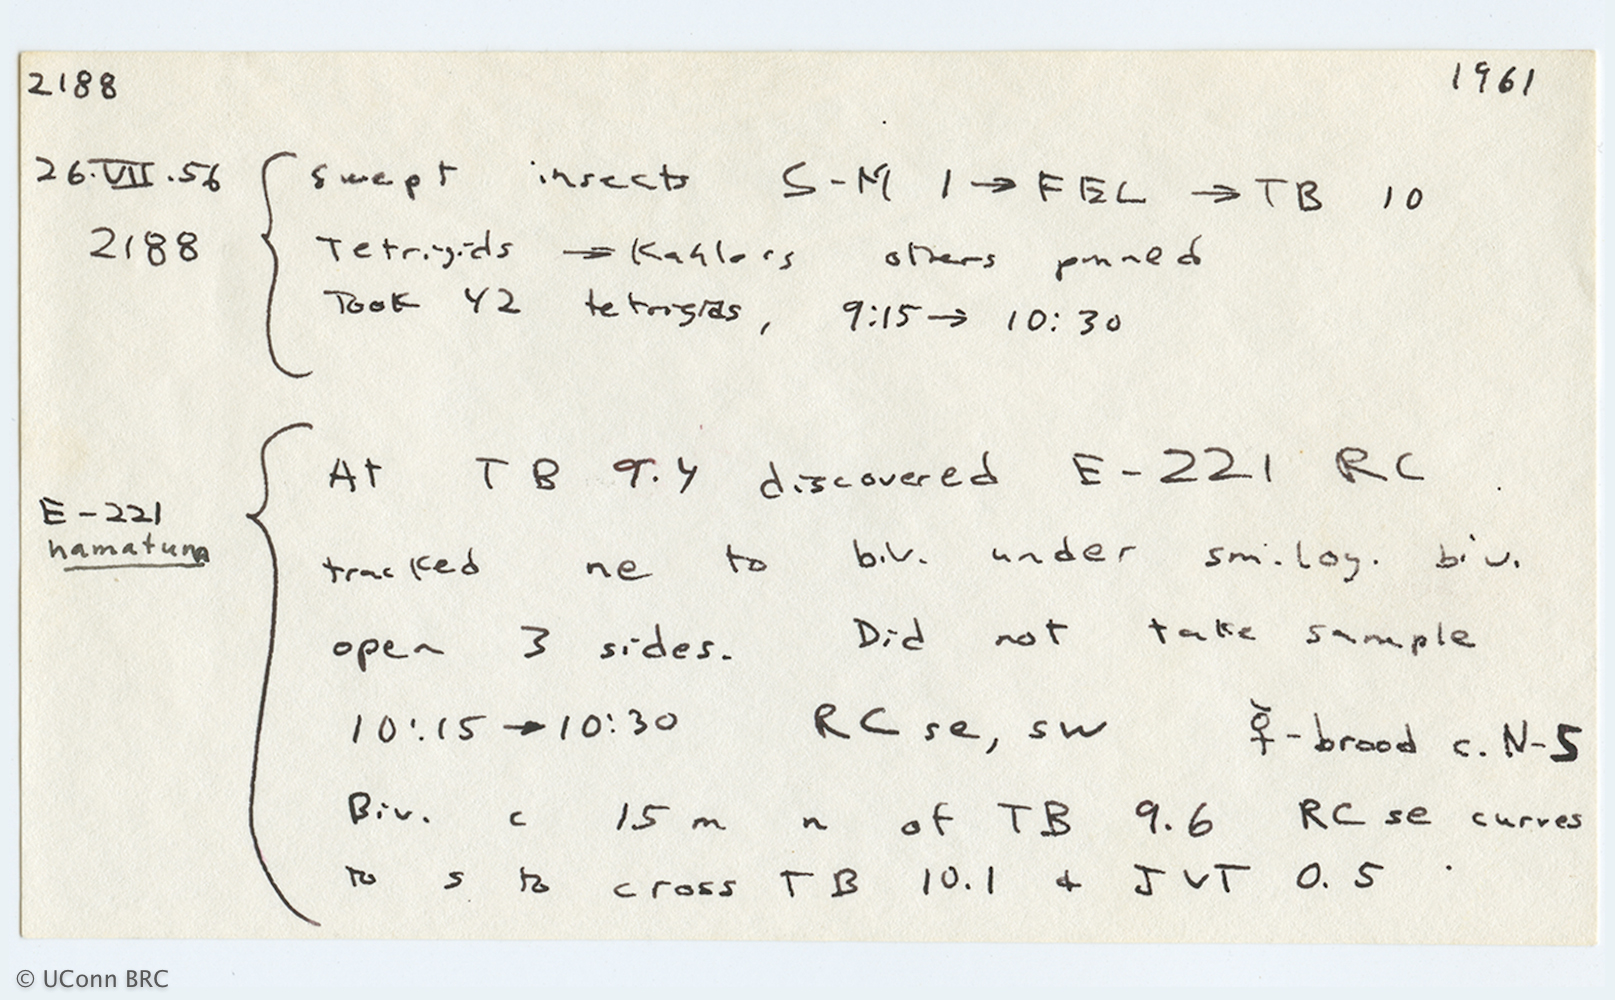 2188 1961
26.VII.56 Swept insects S-M 1→FEL → TB 10
2188 Tetrigids → Kahlors others pinned
Took 42 tetrigids, 9:15→ 10:30
At TB 9.4 discovered E-221 RC
E-221
hamatum
tracked ne to biv. under sm. log. biv.
open 3 sides. Did not take sample
10:15→10:30 RC se, sw ☿-brood c. N-5
Biv. c 15 m n of TB 9.6 RC se curves
to s to cross TB 10.1 + JVT 0.5
© UConn BRC